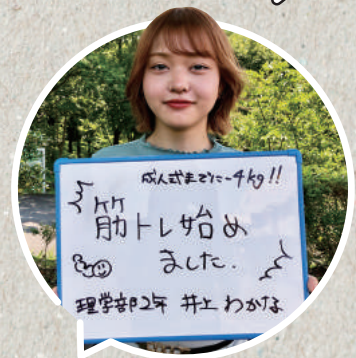 成人式までに-4kg!!
筋トレ始め
ました.
理学部2年 井上 わかな